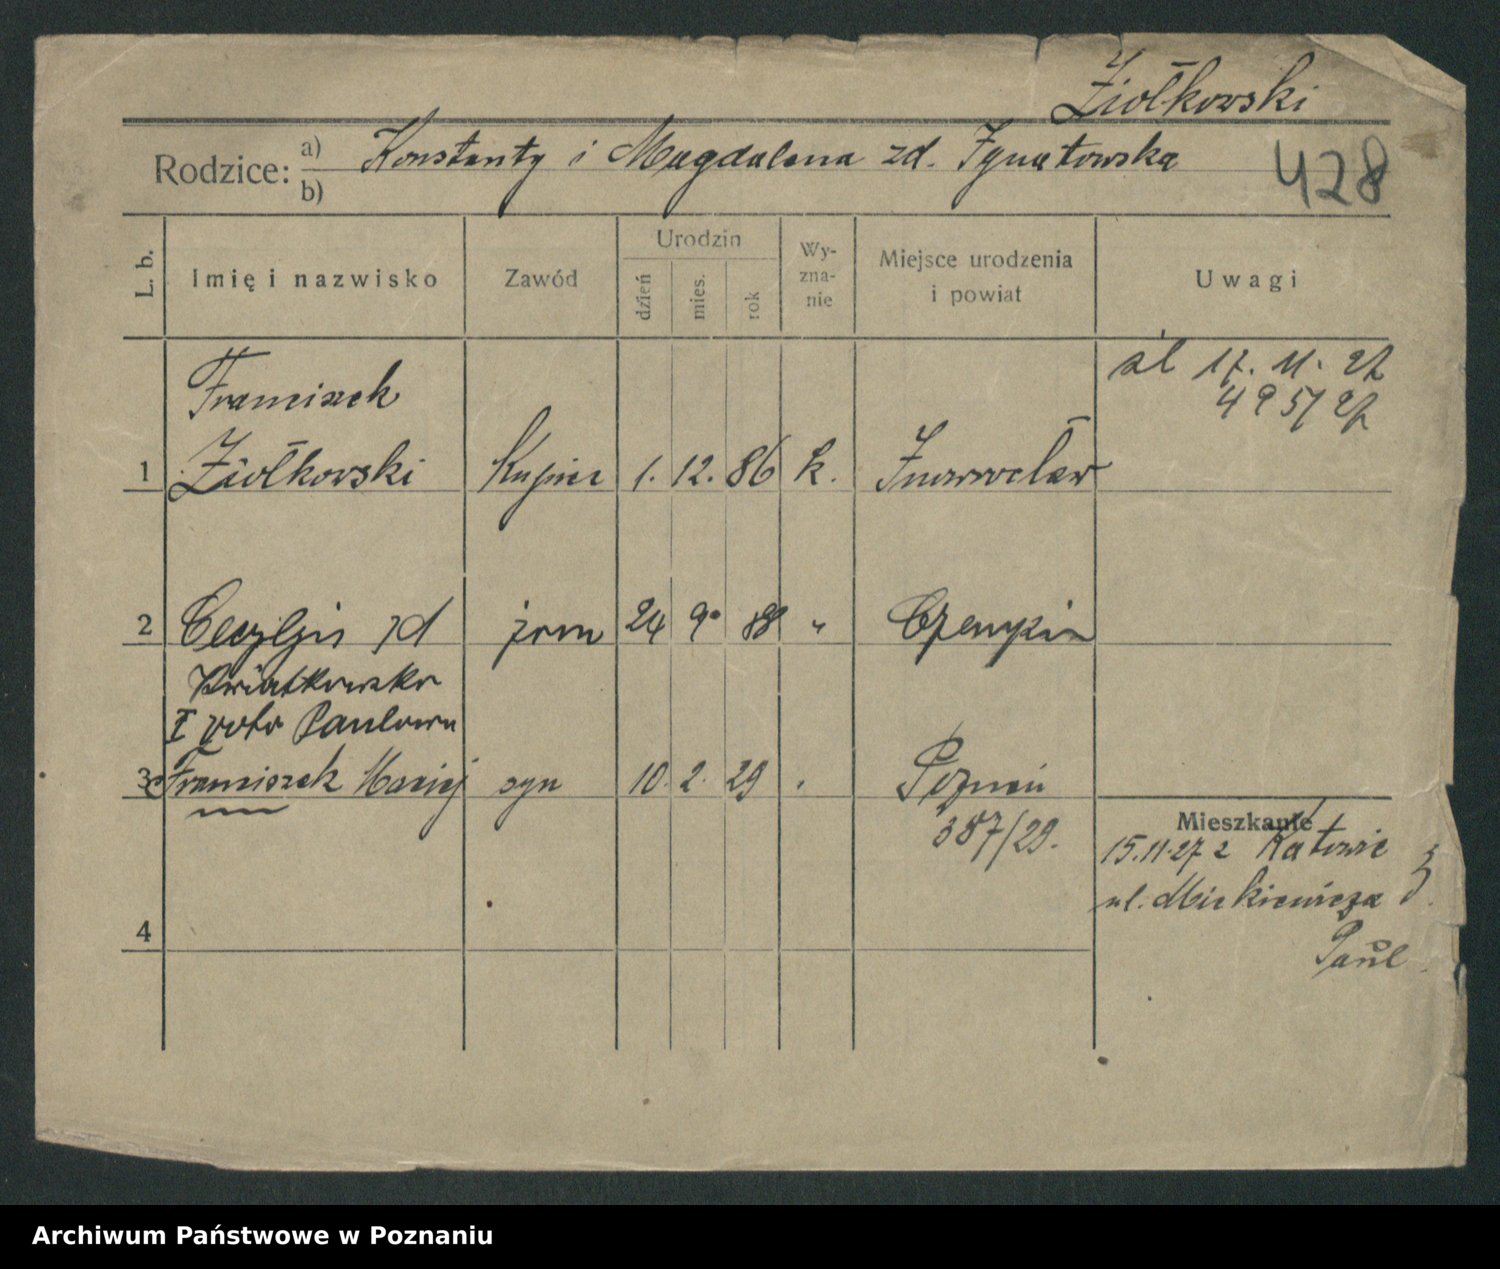 Ziółkowski
Rodzice: a) Konstanty i Magdalena zd. Ignatowska
b)
428
L. b.
Imię i nazwisko
Zawód
Urodzin
dzień
mies.
rok
Wy-
zna-
nie
Miejsce urodzenia
i powiat
Uwagi
śl 17. 11. 27
495/27
Franciszek
1 Ziółkowski Kupiec 1. 12. 86 k. Inowrocław
2 Cecylja zd żona 24 9 88 "
Kwiatkowska
I voto Paulowa
3 Franciszek Maciej syn 10. 2. 29 Poznań
387/29.
Mieszkanie
15.11.27 z Katowic
ul. Mickiewicza
Paul
4
Archiwum Państwowe w Poznaniu